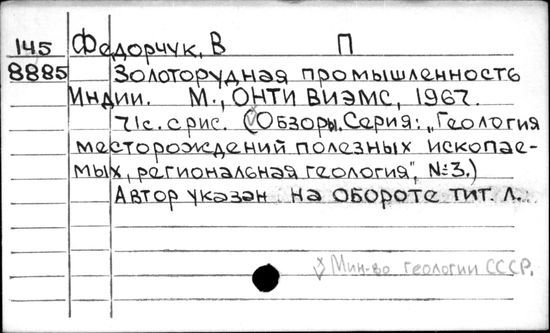 145 Федорчук, В П
8885 Золоторудная промышленность
Индии. М., ОНТИ ВИЭМС, 1967.
71с. с рис. (Обзоры. Серия: „Геология
месторождений полезных ископае-
мых, региональная геология", №3.)
Автор указан на обороте тит. л.
Мин-во геологии СССР.